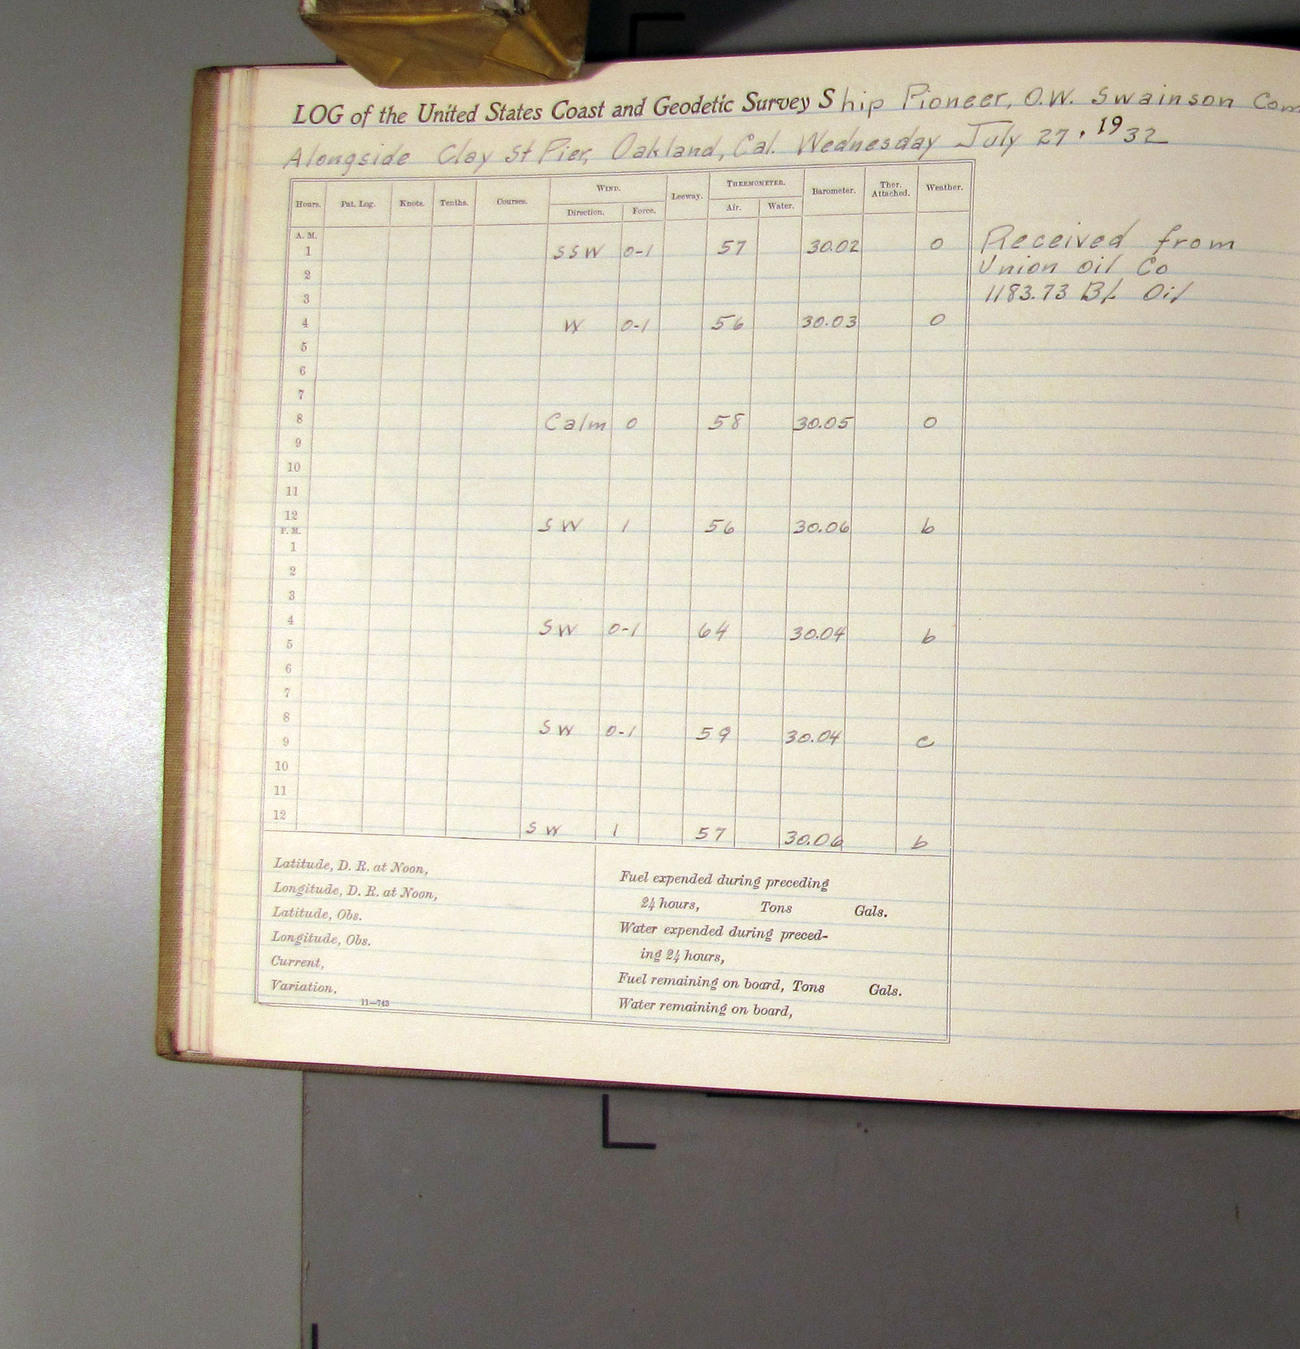 LOG of the United States Coast and Geodetic Survey Ship Pioneer, O.W. Swainson Com
Alongside Clay St Pier, Oakland, Cal. Wednesday July 27, 1932
Hours. Pat. Log. Knots. Tenths. Courses. WIND. Direction. Force. Leeway. THERMOMETER. Air. Water. Barometer. Ther. Attached. Weather.
A. M.
1 SSW 0-1 57 30.02 o Received from
2 Union Oil Co
3 1183.73 Bf. Oil
4 W 0-1 56 30.03 o
5
6
7
8 Calm 0 58 30.05 o
9
10
11
12 SW 1 56 30.06 b
P. M.
1
2
3
4 SW 0-1 64 30.04 b
5
6
7
8 SW 0-1 59 30.04 c
9
10
11
12 SW 1 57 30.06 b
Latitude, D. R. at Noon,
Longitude, D. R. at Noon,
Latitude, Obs.
Longitude, Obs.
Current,
Variation.
11—743
Fuel expended during preceding
24 hours, Tons Gals.
Water expended during preced-
ing 24 hours,
Fuel remaining on board, Tons Gals.
Water remaining on board,